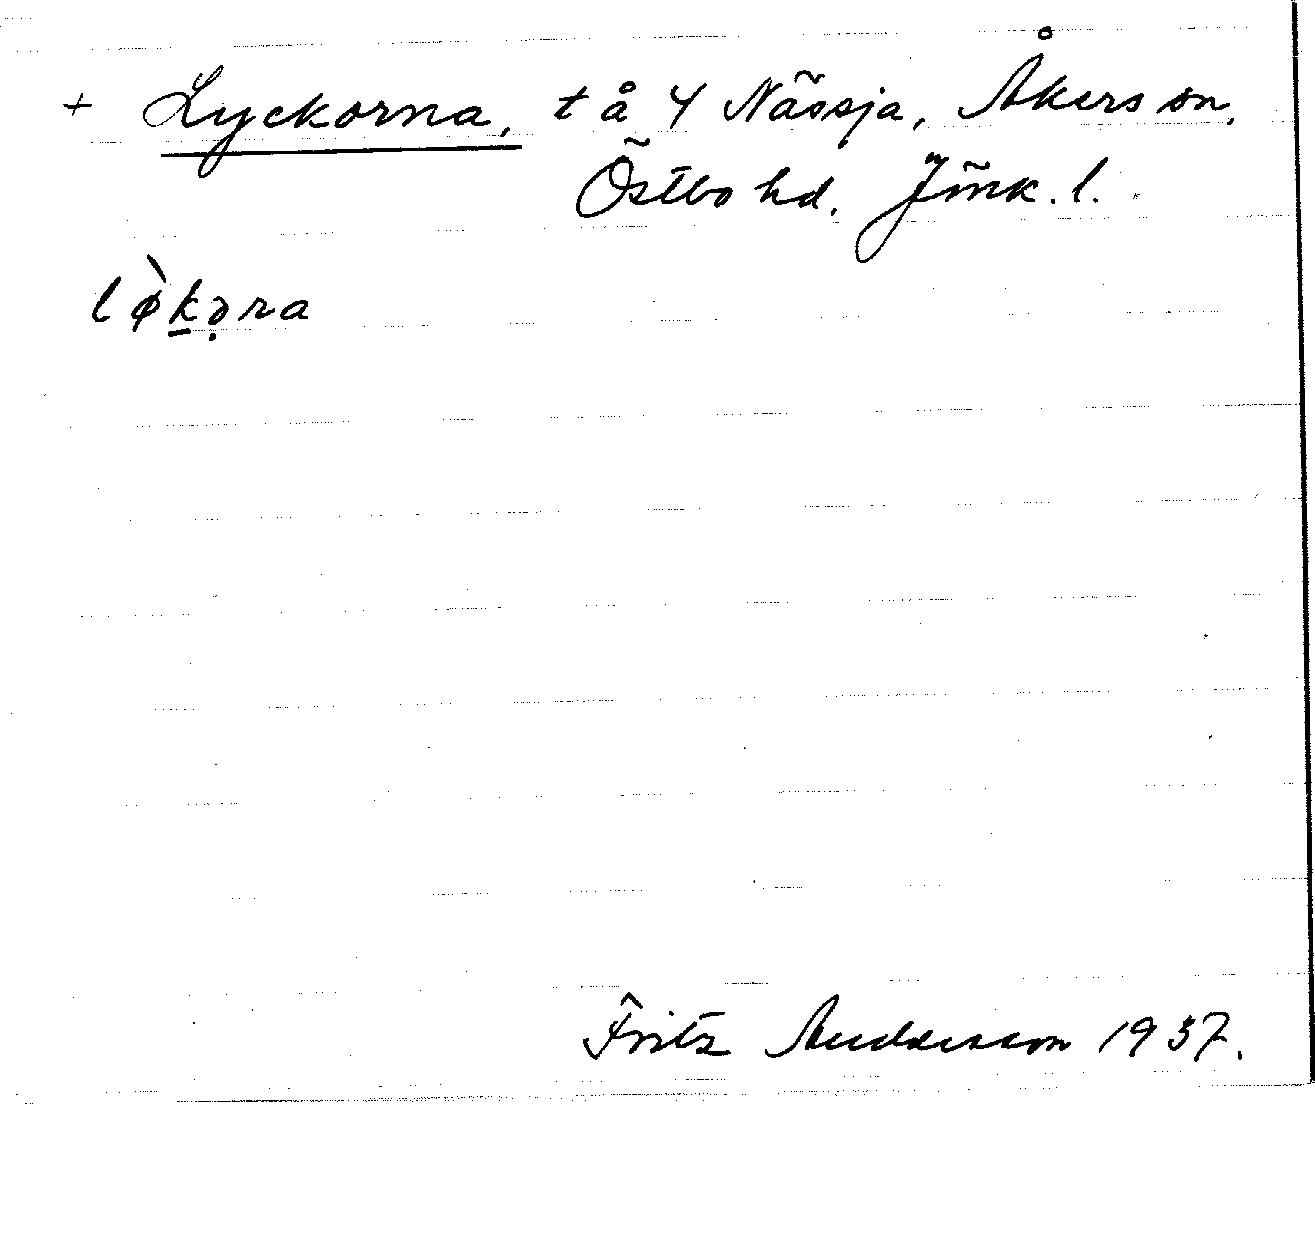 + Lyckorna, t å 4 Nässja, Åkers sn,
Östbo hd. Jönk. l.
lø̀k̠ə̣ra
Fritz Andersson 1937.